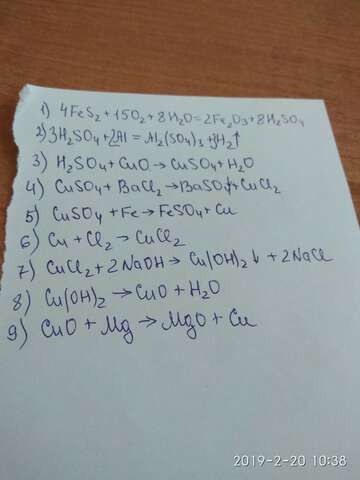 1) 4FeS₂ + 15O₂ + 8H₂O = 2Fe₂O₃ + 8H₂SO₄
2) 3H₂SO₄ + 2Al = Al₂(SO₄)₃ + 3H₂↑
3) H₂SO₄ + CuO → CuSO₄ + H₂O
4) CuSO₄ + BaCl₂ → BaSO₄↓ + CuCl₂
5) CuSO₄ + Fe → FeSO₄ + Cu
6) Cu + Cl₂ → CuCl₂
7) CuCl₂ + 2NaOH → Cu(OH)₂↓ + 2NaCl
8) Cu(OH)₂ → CuO + H₂O
9) CuO + Mg → MgO + Cu
2019-2-20 10:38